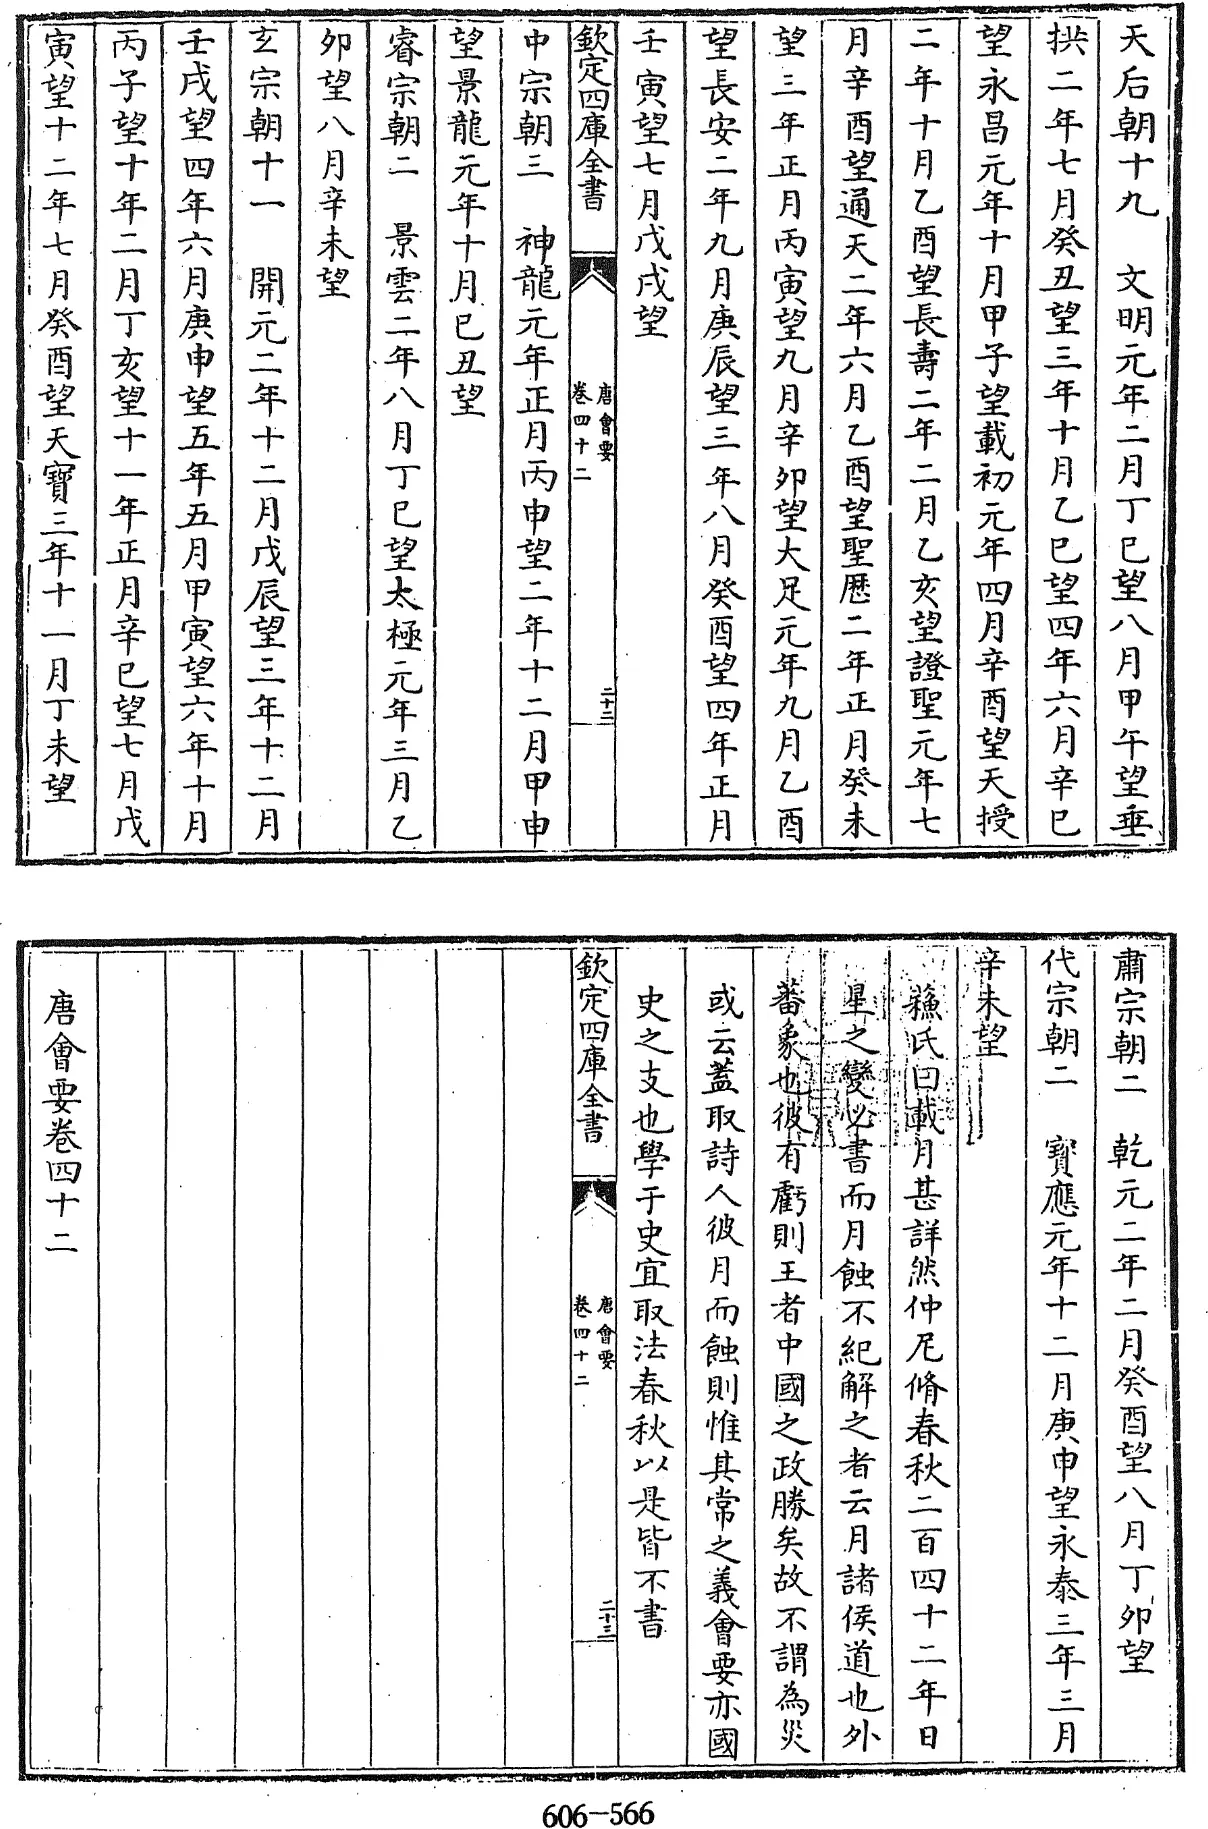 天后朝十九　文明元年二月丁巳望八月甲午望垂
拱二年七月癸丑望三年十月乙巳望四年六月辛巳
望永昌元年十月甲子望載初元年四月辛酉望天授
二年十月乙酉望長壽二年二月乙亥望證聖元年七
月辛酉望通天二年六月乙酉望聖歷二年正月癸未
望三年正月丙寅望九月辛卯望大足元年九月乙酉
望長安二年九月庚辰望三年八月癸酉望四年正月
壬寅望七月戊戌望
欽定四庫全書
唐會要
卷四十二
二十二
中宗朝三　神龍元年正月丙申望二年十二月甲申
望景龍元年十月己丑望
睿宗朝二　景雲二年八月丁巳望太極元年三月乙
卯望八月辛未望
玄宗朝十一　開元二年十二月戊辰望三年十二月
壬戌望四年六月庚申望五年五月甲寅望六年十月
丙子望十年二月丁亥望十一年正月辛巳望七月戊
寅望十二年七月癸酉望天寶三年十一月丁未望
肅宗朝二　乾元二年二月癸酉望八月丁卯望
代宗朝二　寶應元年十二月庚申望永泰三年三月
辛未望
蘓氏曰載月甚詳然仲尼脩春秋二百四十二年日
星之變必書而月蝕不紀解之者云月諸侯道也外
蕃象也彼有虧則王者中國之政勝矣故不謂為災
或云蓋取詩人彼月而蝕則惟其常之義會要亦國
史之支也學于史宜取法春秋以是皆不書
欽定四庫全書
唐會要
卷四十二
二十三
唐會要卷四十二
606-566